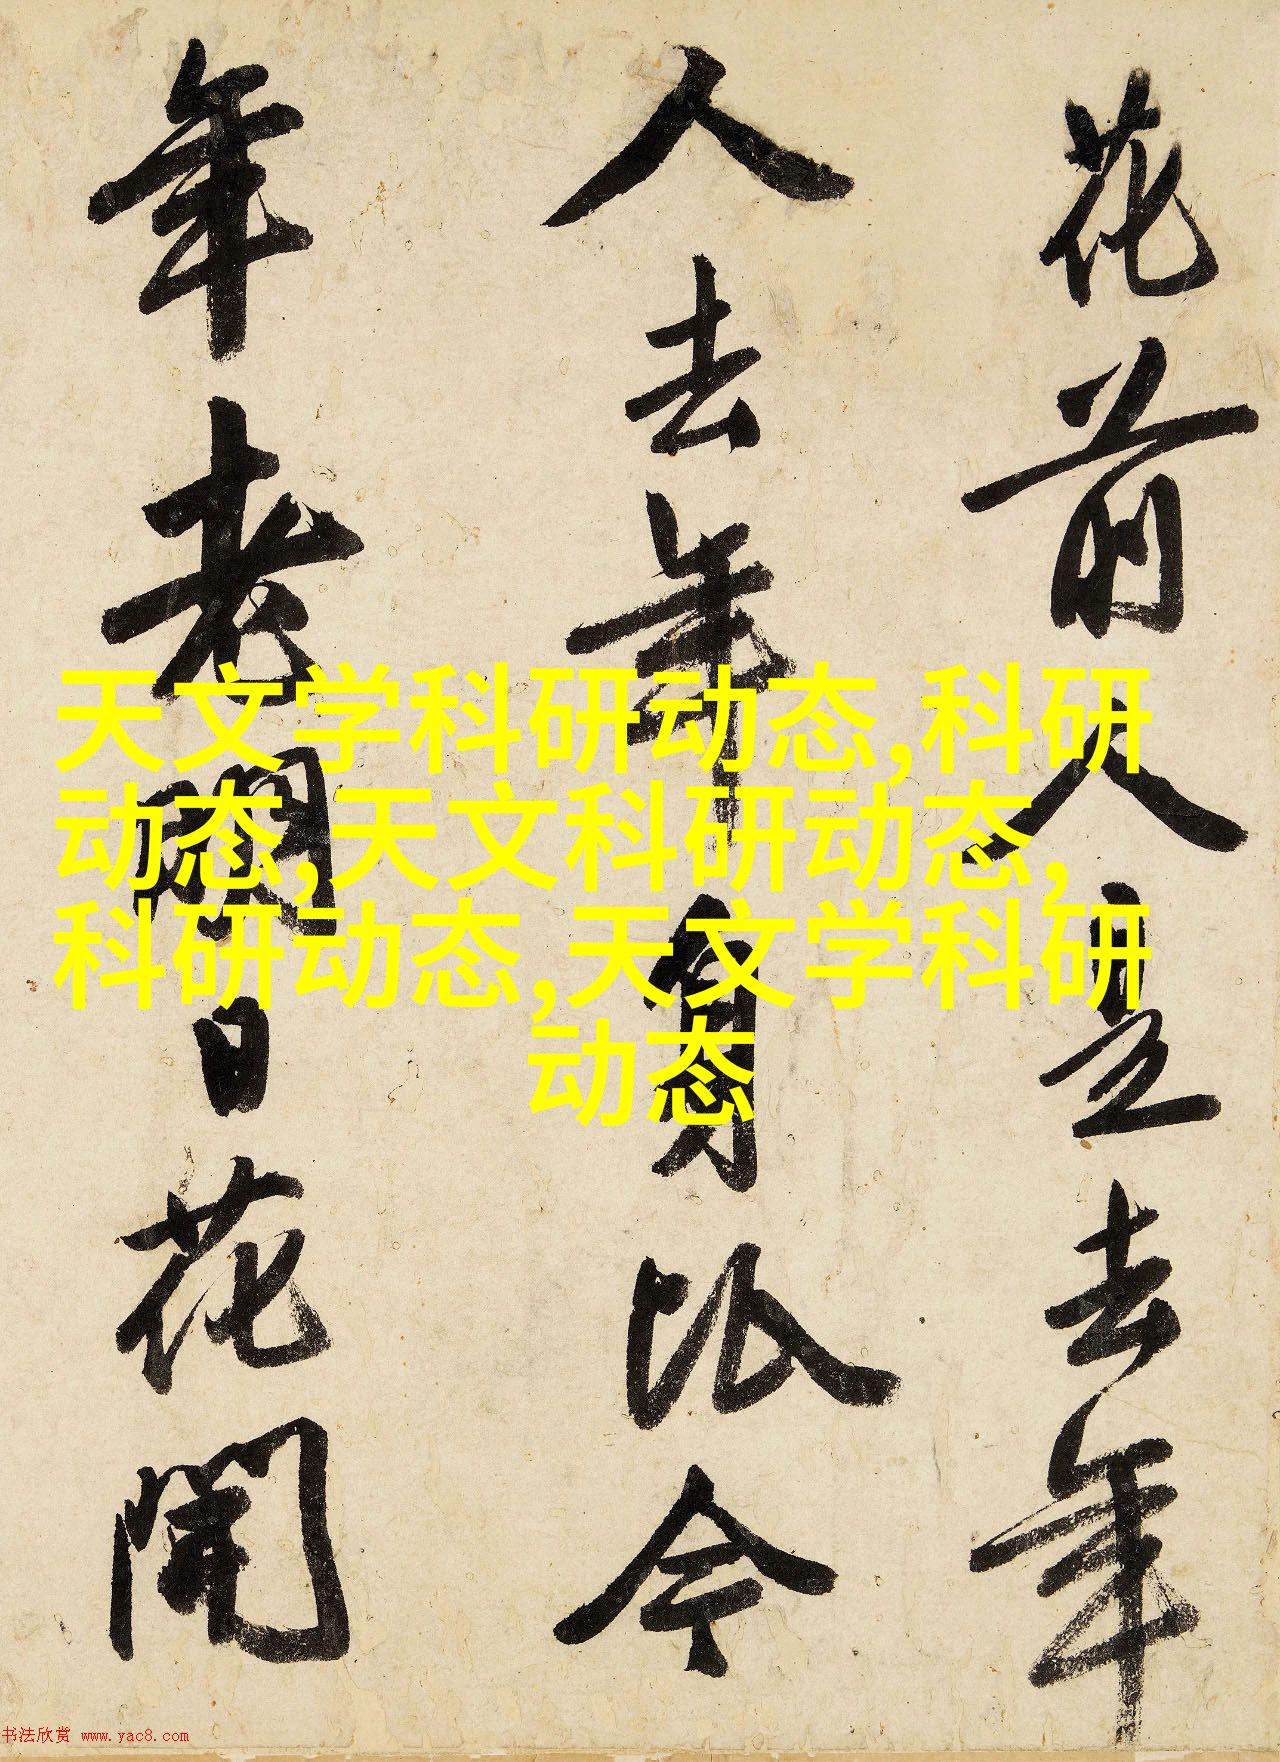 花前人是去年
人去年身比今
年老日花開
天文学科研动态,科研
动态,天文科研动态,
科研动态,天文学科研
动态
书法欣赏 www.yac8.com